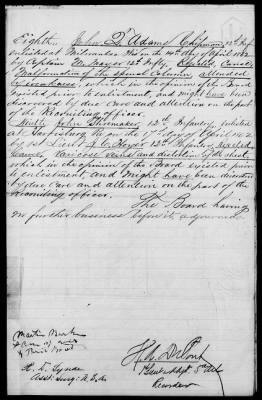 Eighth. John Q. Adams Chipman, 12th Infy,
enlisted at Milwaukee Wis on the 14th day of April 1862
by Captain M. Mayer 12th Infty, Cause,
Malformation of the Spinal Column, attended
by which in the opinion of the Board
existed prior to enlistment, and might have been
discovered by due care and attention on the part
of the Recruiting officer.
John Shumaker, 12th Infantry, enlisted
at Harrisburg Pa on the 17th day of April 1862
by 1st Lieut 12th Infantry, rejected
Cause, Varicose veins and of the chest,
which in the opinion of the Board existed prior
to enlistment, and might have been discovered
by due care and attention on the part of the
Recruiting officer.
The Board having
no further business before it adjourned.
Martin Burke
& Bvt
H. R.
Asst. Surg. U.S.A.
H. A. DuPont
1st Lieut & Adjt. 5th Art
Recorder